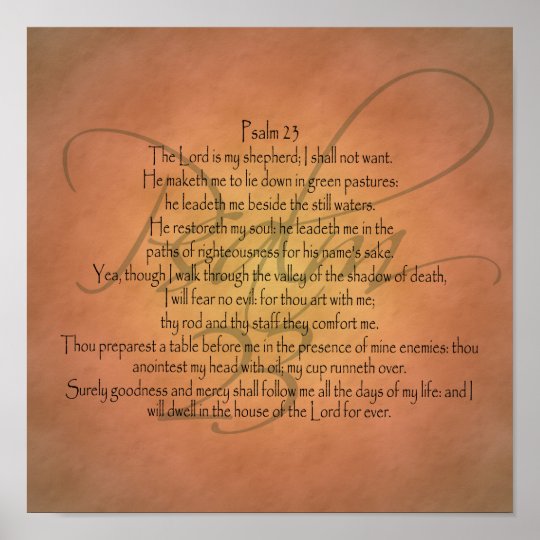 Psalm 23
The Lord is my shepherd; I shall not want.
He maketh me to lie down in green pastures:
he leadeth me beside the still waters.
He restoreth my soul: he leadeth me in the
paths of righteousness for his name's sake.
Yea, though I walk through the valley of the shadow of death,
I will fear no evil: for thou art with me;
thy rod and thy staff they comfort me.
Thou preparest a table before me in the presence of mine enemies: thou
anointest my head with oil; my cup runneth over.
Surely goodness and mercy shall follow me all the days of my life: and I
will dwell in the house of the Lord for ever.
Psalm
23